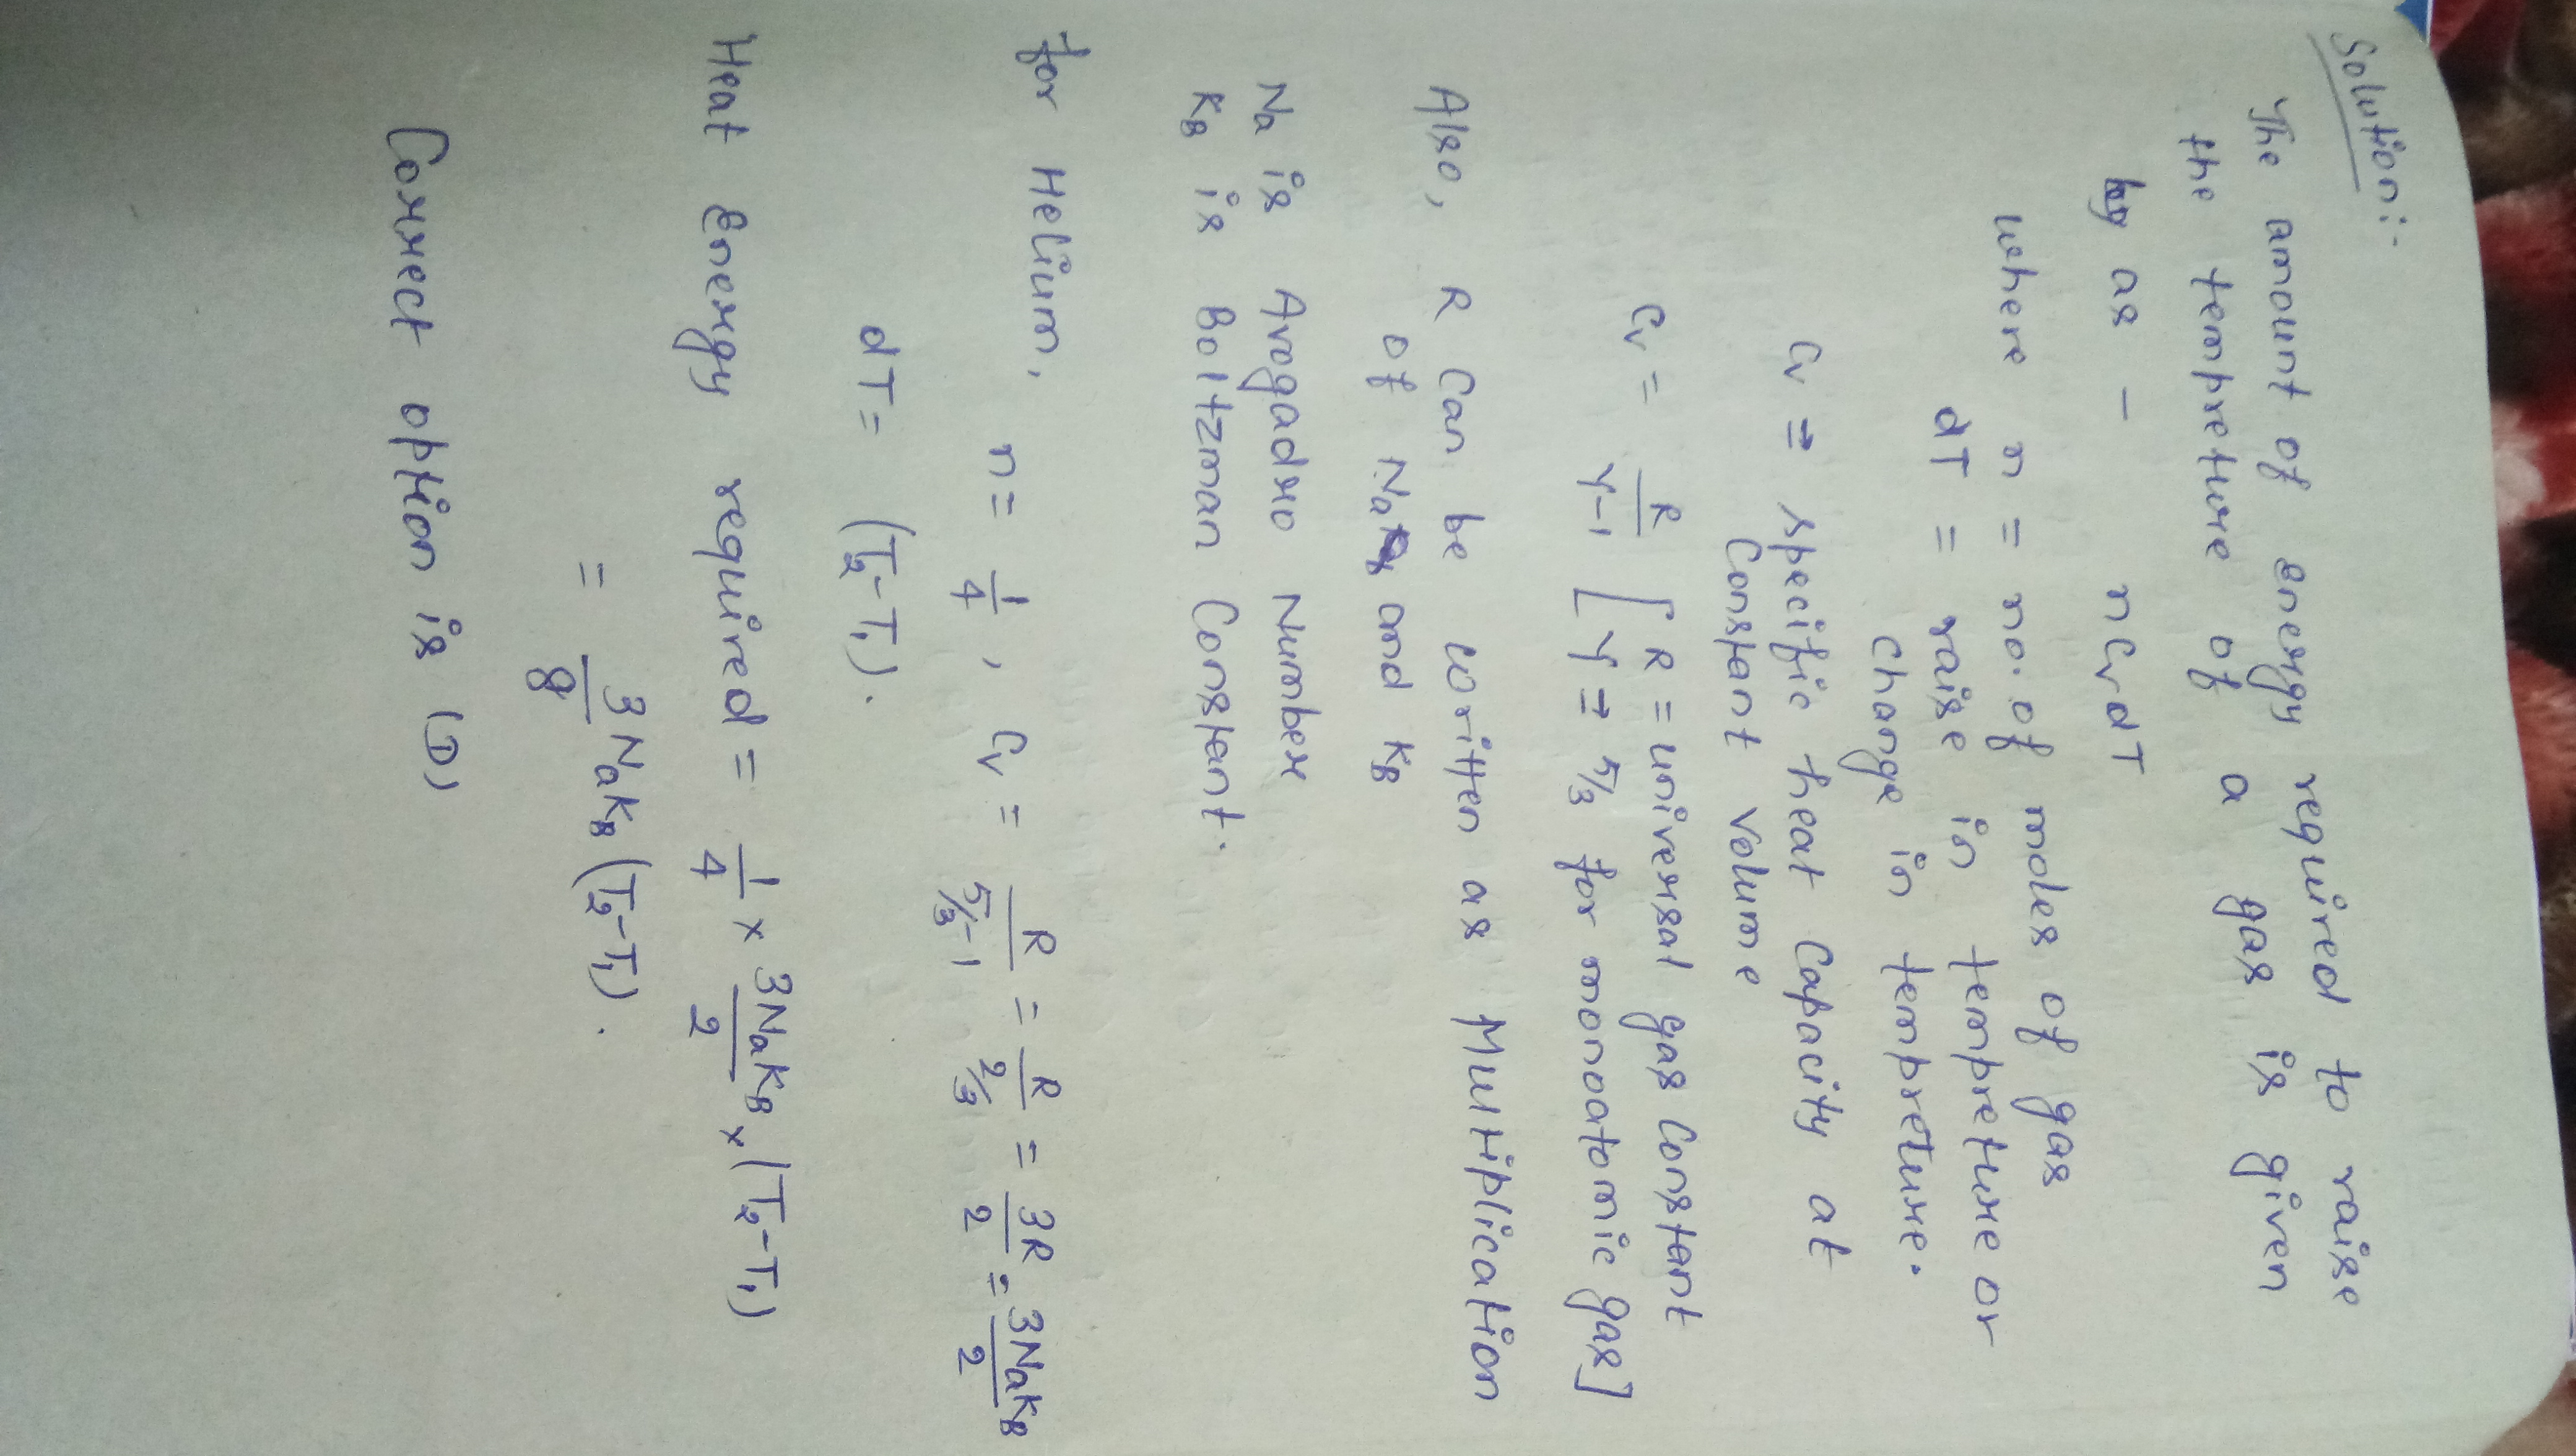 Solution:-
The amount of energy required to raise
the tempreture of a gas is given
by as - nCvdT
where n = no. of moles of gas
dT = raise in tempreture or
change in tempreture.
Cv ⇒ specific heat capacity at
constant volume
Cv = R/γ-1 [R = universal gas constant
γ ⇒ 5/3 for monoatomic gas]
Also, R can be written as Multiplication
of Na and KB
Na is Avogadro Number
KB is Boltzman Constant.
for Helium,
n = 1/4, Cv = R/5/3-1 = R/2/3 = 3R/2 = 3NaKB/2
dT = (T2-T1).
Heat Energy required = 1/4 × 3NaKB/2 × (T2-T1)
= 3/8 NaKB(T2-T1).
Correct option is (D)